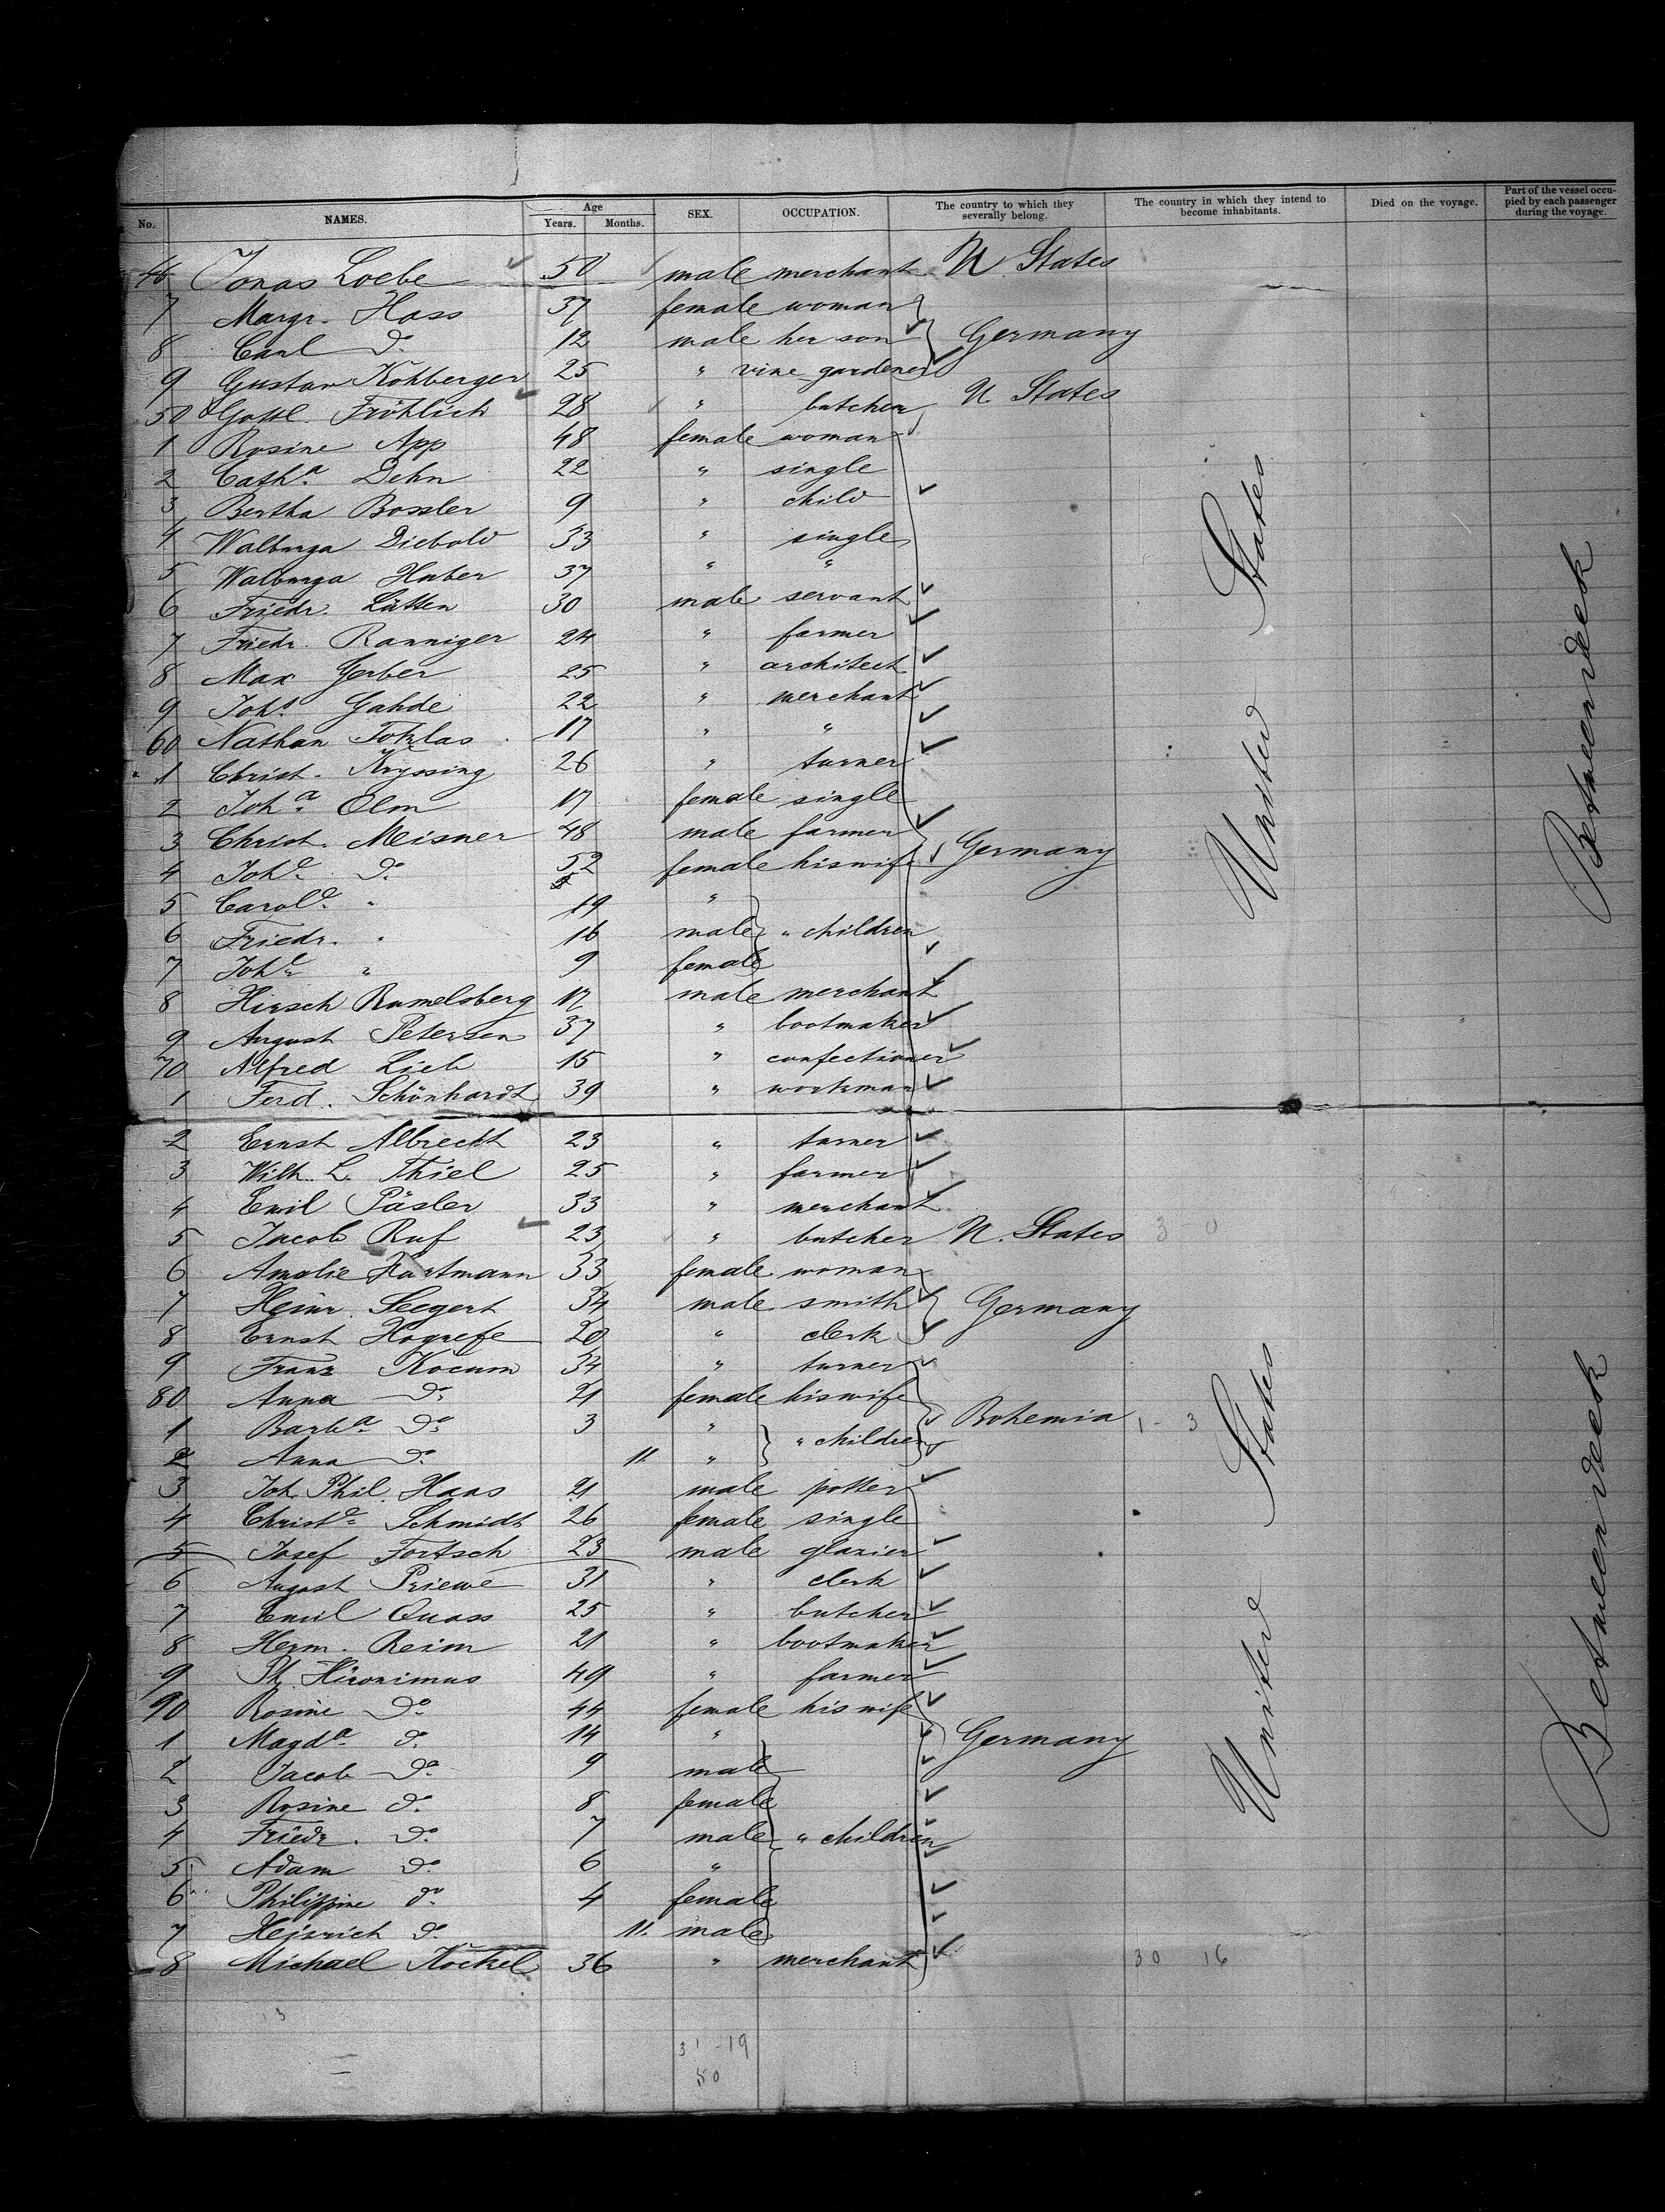 No. NAMES. Age Years. Months. SEX. OCCUPATION. The country to which they severally belong. The country in which they intend to become inhabitants. Died on the voyage. Part of the vessel occupied by each passenger during the voyage.
46 Jonas Loebe 50 male merchant U. States
7 Margr. Hass 37 female woman
8 Carl do. 12 male her son Germany
9 Gustav Kohberger 25 " vine gardener
50 Gottl. Fröhlich 28 " butcher U. States
1 Rosine App 48 female woman
2 Catha. Dehn 22 " single
3 Bertha Bossler 9 " child
4 Walburga Diebold 33 " single
5 Walburga Huber 37 " "
6 Friedr. Lütten 30 male servant
7 Friedr. Ranniger 24 " farmer
8 Max Gerber 25 " architect
9 Johs. Gahde 22 " merchant
60 Nathan Toklas 17 " "
1 Christ. Kryssing 26 " turner
2 Joha. Olm 17 female single
3 Christ. Meisner 48 male farmer
4 Johe. do. 52 female his wife Germany
5 Carole. " 19 "
6 Friedr. " 16 male " children
7 Johe. " 9 female
8 Hirsch Rumelsberg 17 male merchant
9 August Petersen 37 " bootmaker
70 Alfred Lieb 15 " confectioner
1 Ferd. Schönhardt 39 " workman
2 Ernst Albrecht 23 " turner
3 Wilh. L. Thiel 25 " farmer
4 Emil Päsler 33 " merchant
5 Jacob Ruf 23 " butcher U. States 3 - 0
6 Amalie Hartmann 33 female woman
7 Heinr. Seegert 34 male smith Germany
8 Ernst Hogrefe 20 " clerk
9 Franz Kocum 34 " turner
80 Anna do. 21 female his wife
1 Barba. do. 3 " Bohemia 1 - 3
2 Anna do. 11. " " children
3 Joh. Phil. Haas 21 male potter
4 Christe. Schmidt 26 female single
5 Josef Fortsch 23 male glazier
6 August Priewe 31 " clerk
7 Emil Quass 25 " butcher
8 Herm. Reim 21 " bootmaker
9 Ph. Hironimus 49 " farmer
90 Rosine do. 44 female his wife
1 Magda. do. 14 " Germany
2 Jacob do. 9 male
3 Rosine do. 8 female
4 Friedr. do. 7 male " children
5 Adam do. 6 "
6 Philippine do. 4 female
7 Heinrich do. 11. male
8 Michael Köckel 36 " merchant 30 16
United States
Betweendeck
United States
Betweendeck
13
31 - 19
50